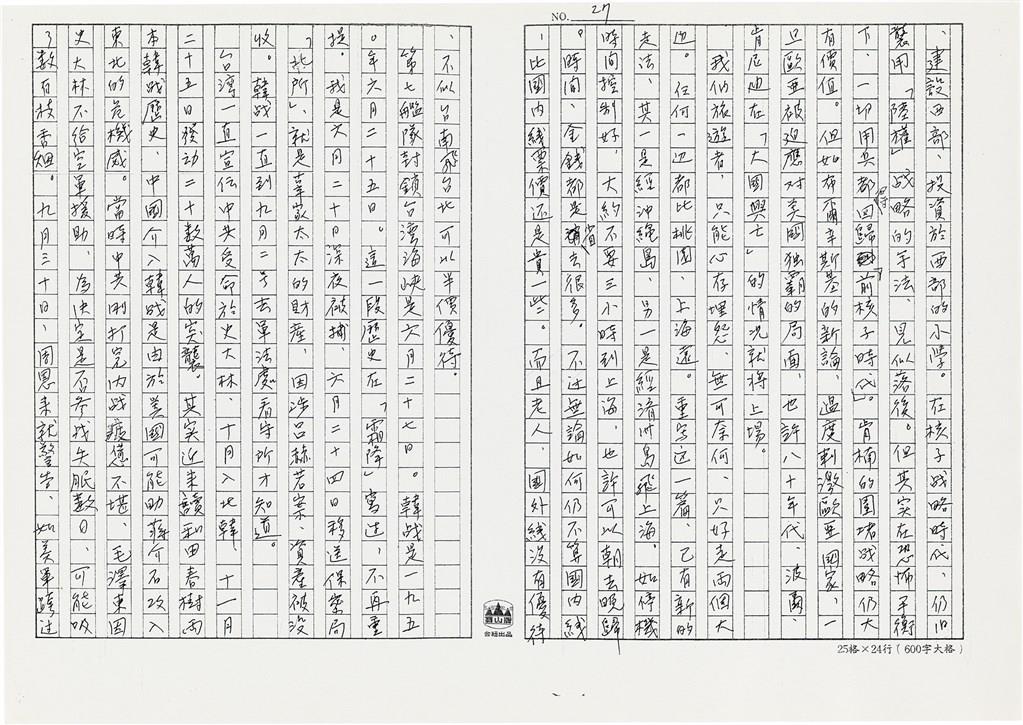 NO. 27
、建設西部、投資於西部的小學。在核子战略時代、仍旧
襲用「陸權」战略的手法、見似落後。但其实在恐怖平衡
下、一切用兵都得回歸「前核子時代」。肯楠的圍堵战略仍大
有價值。但如布爾辛斯基的新論、過度刺激歐亜国家、一
旦歐亜被迫應对美國独霸的局面、也許八十年代、波爾、
肯尼迪在「大國興亡」的情况就将上場。
我們旅遊者、只能心存埋怨、無可奈何、只好走兩個大
边。任何一边都比桃園、上海遠。重写这一篇、已有新的
走法、其一是經沖繩島、另一是經濟州島飛上海。如停機
時间控制好、大約不要三小時到上海、也許可以朝去晚歸
。時间、金錢都是省去很多。不过無論如何仍不算國内线
、比國内线票價还是貴一些。而且老人、国外线没有優待
、不似台南飛台北可以半價優待。
第七艦隊封鎖台湾海峡是六月二十七日。韓战是一九五
〇年六月二十五日。這一段歷史在「霜降」寫过、不再重
提。我是六月二十日深夜被捕、六月二十四日移送保密局
「北所」、就是辜家太太的財産、因涉呂赫若案、資產被没
收。韓战一直到九月二号去軍法處看守所才知道。
台湾一直宣伝中共受命於史大林、十月入北韓、十一月
二十五日發动二十数萬人的突襲。其实近来讀和田春樹兩
本韓战歷史、中國介入韓战是由於美國可能助蒋介石攻入
東北的危機感。當時中共刚打完内战疲憊不堪、毛澤東因
史大林不给空軍援助、為决定是否参战失眠数日、可能吸
了数百枝香烟。九月三十日、周恩来就警告、如美軍跨过
寶山牌
台紙出品
25格×24行（600字大格）